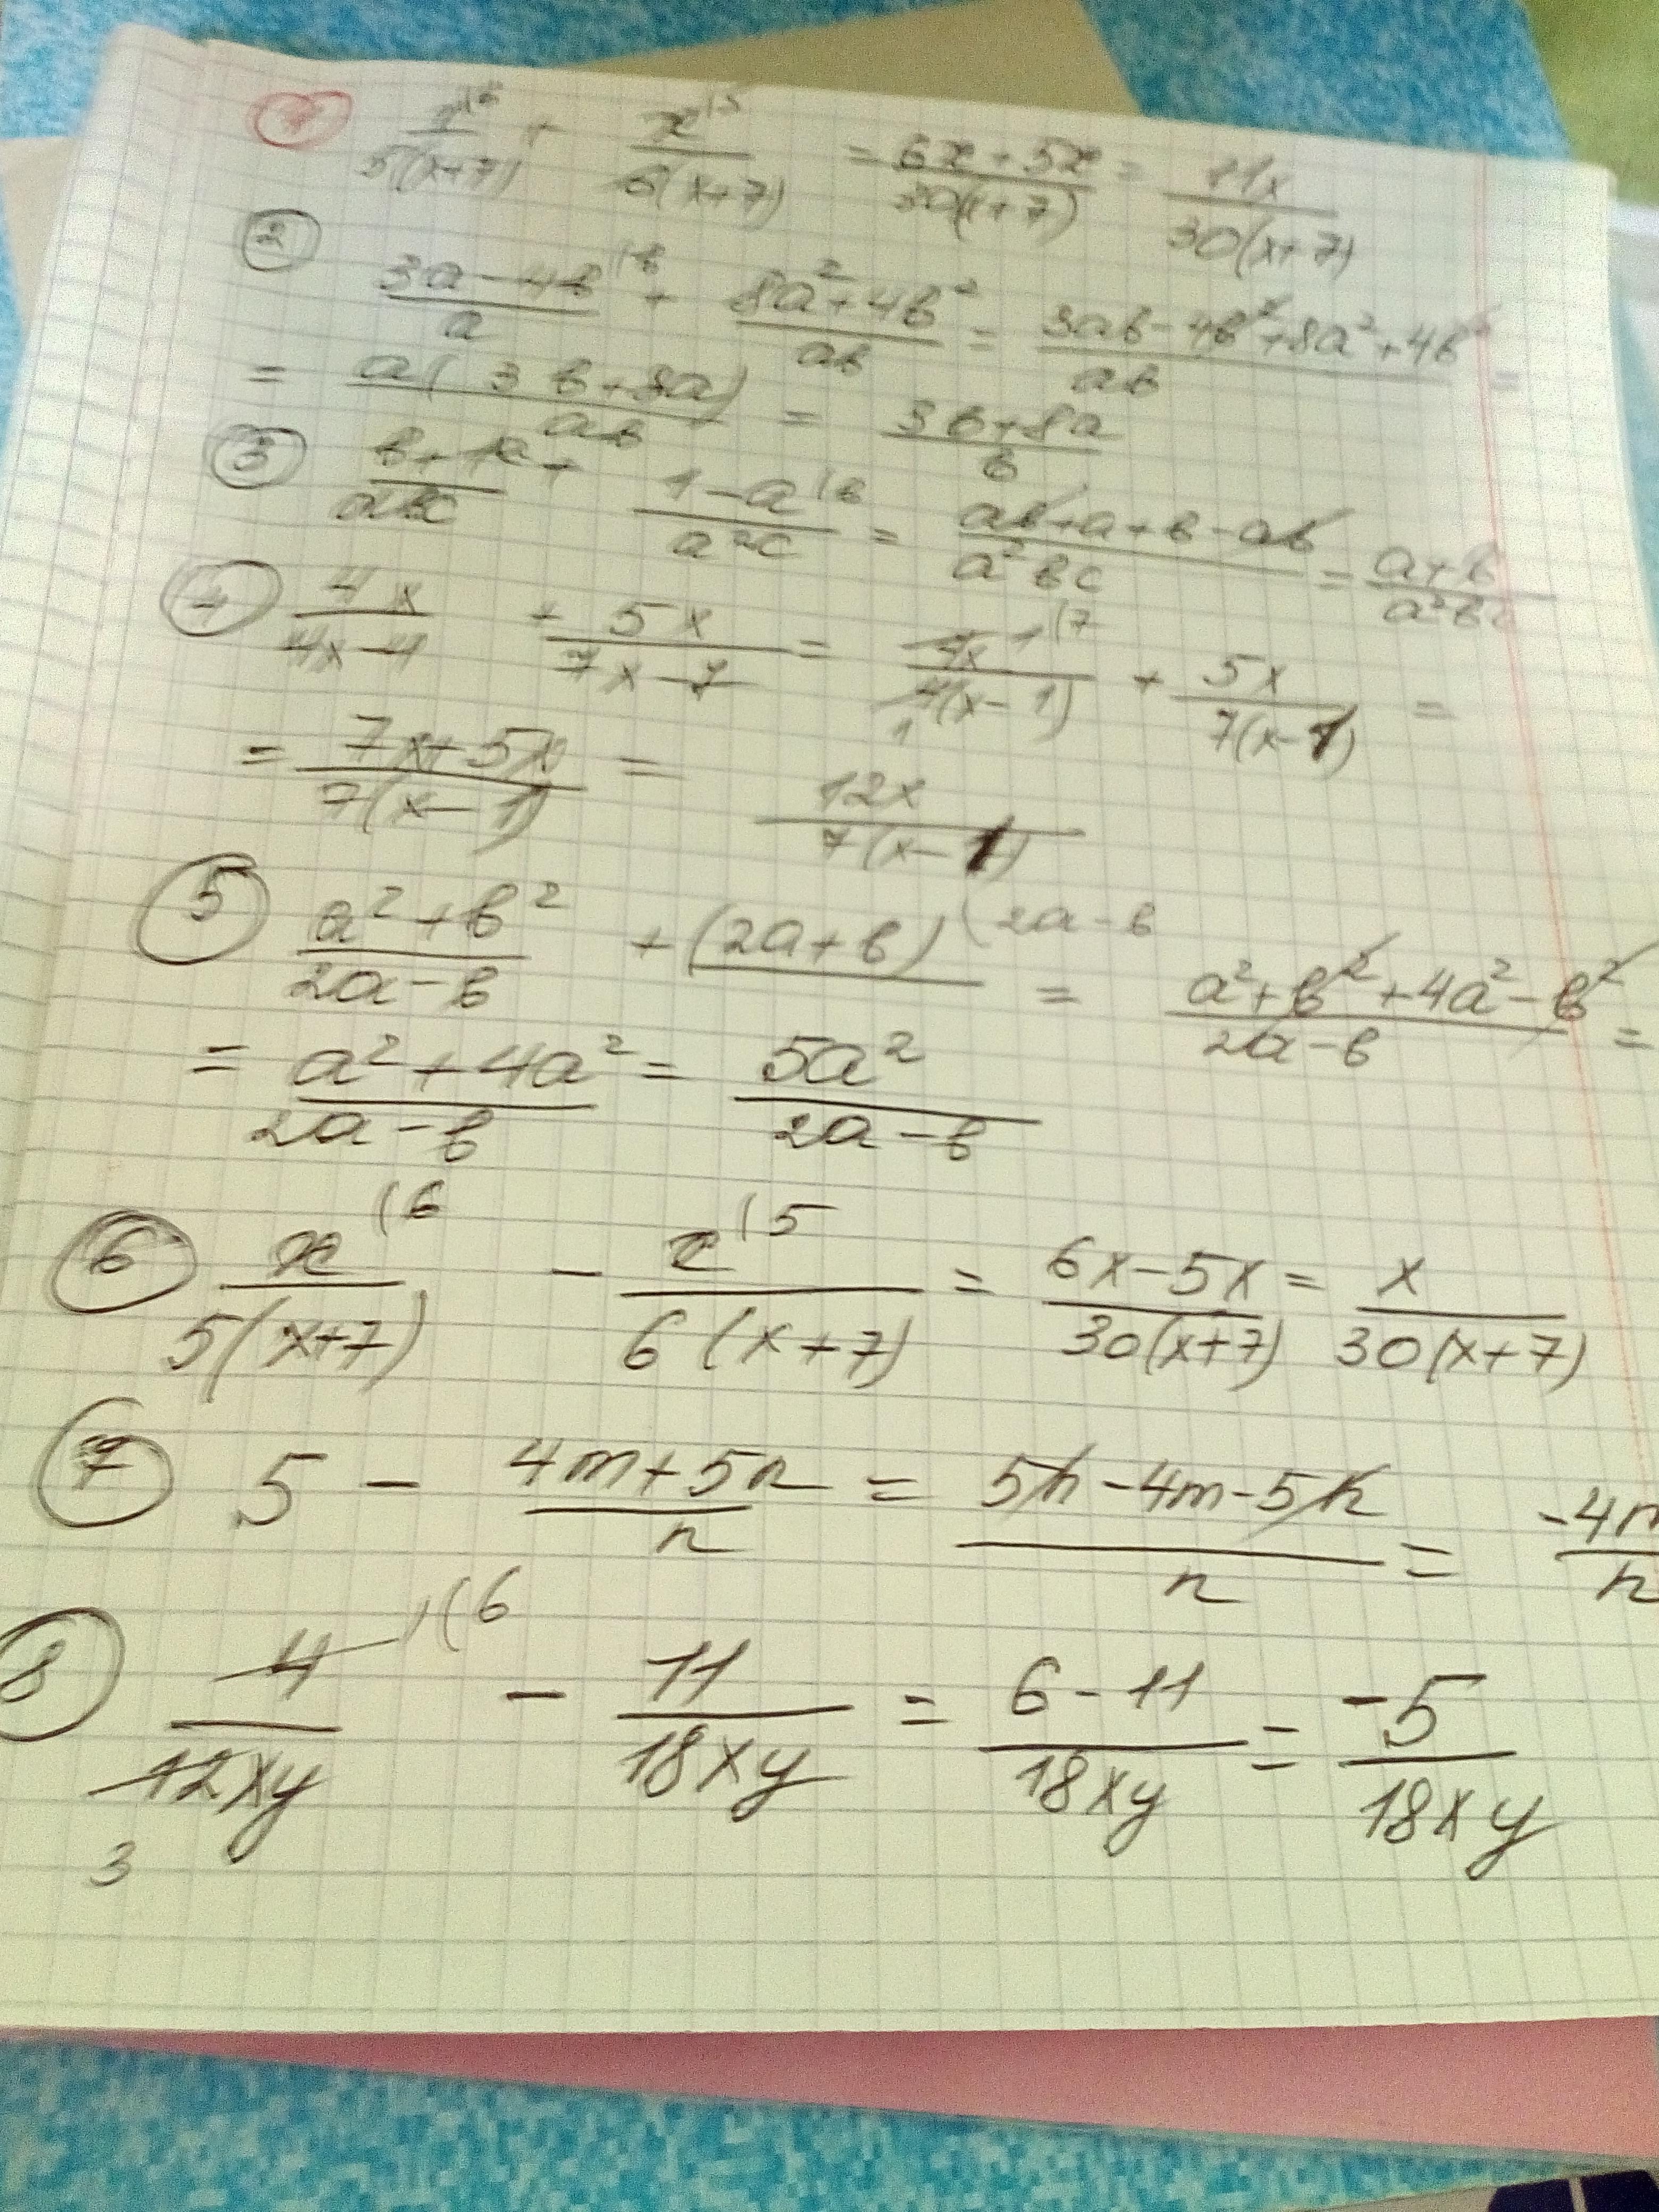 ① x⁽⁶/5(x+7) + x⁽⁵/6(x+7) = 6x+5x/30(x+7) = 11x/30(x+7)
② 3a-4в⁽ᵇ/a + 8a²+4в²/aв = 3aв-4в²+8a²+4в²/aв =
= a(3в+8a)/aв = 3в+8a/в
③ в+1⁽ᵃ/aвc + 1-a⁽ᵇ/a²c = aв+a+в-aв/a²вc = a+в/a²вc
④ 4x/4x-4 + 5x/7x-7 = 4x 1⁽⁷/4(x-1) 1 + 5x/7(x-1) =
= 7x+5x/7(x-1) = 12x/7(x-1)
⑤ a²+в²/2a-в + (2a+в)(2a-в = a²+в²+4a²-в²/2a-в =
= a²+4a²/2a-в = 5a²/2a-в
⑥ x⁽⁶/5(x+7) - x⁽⁵/6(x+7) = 6x-5x/30(x+7) = x/30(x+7)
⑦ 5 - 4m+5n/n = 5n-4m-5n/n = -4m/n
⑧ 4 1(6/12xy 3 - 11/18xy = 6-11/18xy = -5/18xy